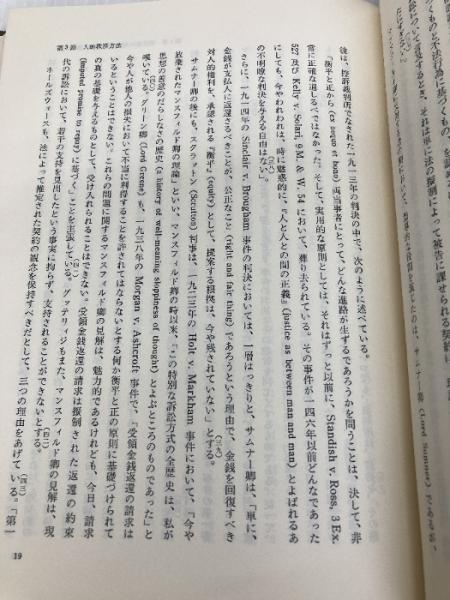 第3節　人的救済方法
後は、控訴裁判所でなされた一九一三年の判決の中で、次のように述べている。
「衡平と正から (ex aequo et bono) 両当事者にとって、どんな進路が生ずるであろうかを問うことは、決して、非
常に正確な道しるべではなかった。そして、実用的な原則としては、それはずっと以前に、Standish v. Ross, 3 Ex.
527 及び Kelly v. Solari, 9 M. & W. 54 において、葬り去られている。その事件が一四六年以前どんなであった
にしても、今やわれわれは、時に魅惑的に、『人と人との間の正義』(justice as between man and man) とよばれるあ
の不明瞭な判決を与える自由はない」。
さらに、一九一四年の Sinclair v. Brougham 事件の判決においては、一層はっきりと、サムナー卿は、「単に、
金銭が支払人に返還さるべきことが、公正なこと (right and fair thing) であろうという理由で、金銭を回復すべき
対人的権利を、承認される『衡平』(equity) として、提案する根拠は、今や残されていない」とする。(三九)
サムナー卿の後にも、スクラットン (Scrutton) 判事は、一九二三年の Holt v. Markham 事件において、「今や
放棄されたマンスフィールド卿の理論」といい、マンスフィールド卿の時以来、「この特別な訴訟方式の全歴史は、私が
思想の善意のだらしなさの歴史 (a history of well-meaning sloppiness of thought) とよぶところのものであった」と
嘆いている。グリーン卿 (Lord Greene) も、一九三八年の Morgan v. Ashcroft 事件で、「受領金銭返還の請求は
今や人が他人の損失において不当に利得することを許されてはならないとする何か衡平と正の原則に基礎づけられて
いるということはできない。これらの問題に関するマンスフィールド卿の見解は、魅力的であるけれども、今日、請求
の真の基礎を与えるものとして、受け入れられることはできない。受領金銭返還の請求は擬制された返還の約束
(imputed promise to repay) に基づく」ことを主張している。ガッテリッジもまた、マンスフィールド卿の見解は、現
代の訴訟において、若干の支持を見出したという事実に拘らず、支持されることができないとする。
ホールズウォースも、法によって推定された契約の観念を保持すべきだとして、三つの理由をあげている。「第一
19